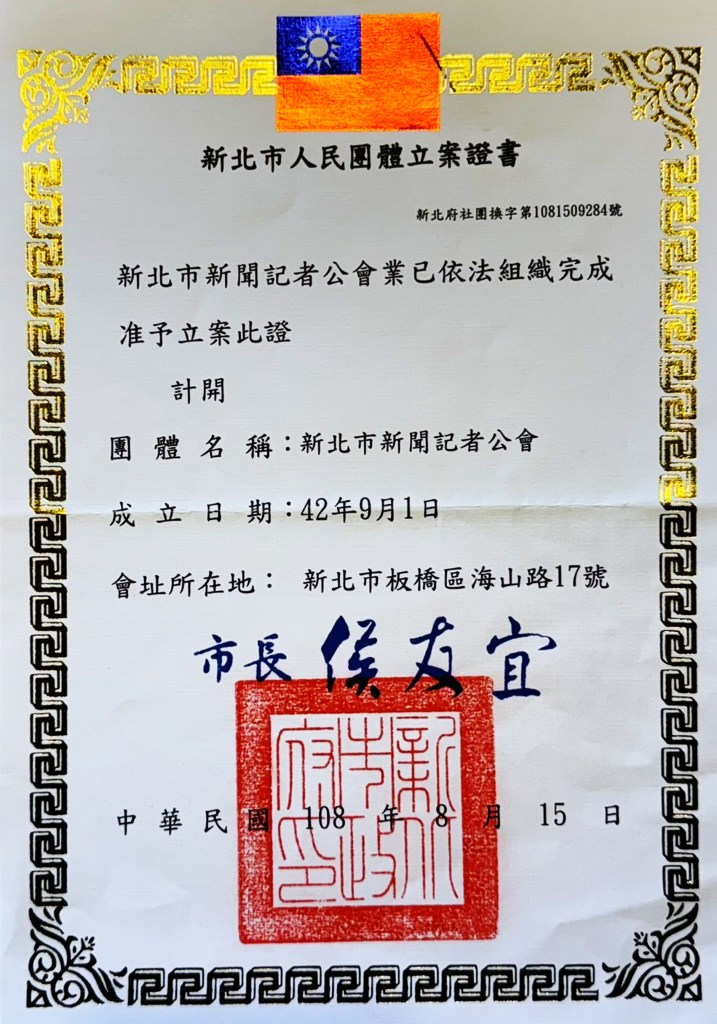 新北市人民團體立案證書
新北府社團換字第1081509284號
新北市新聞記者公會業已依法組織完成
准予立案此證
計開
團體名稱：新北市新聞記者公會
成立日期：42年9月1日
會址所在地： 新北市板橋區海山路17號
市長 侯友宜
新北市政府印
中華民國 108 年 8 月 15 日